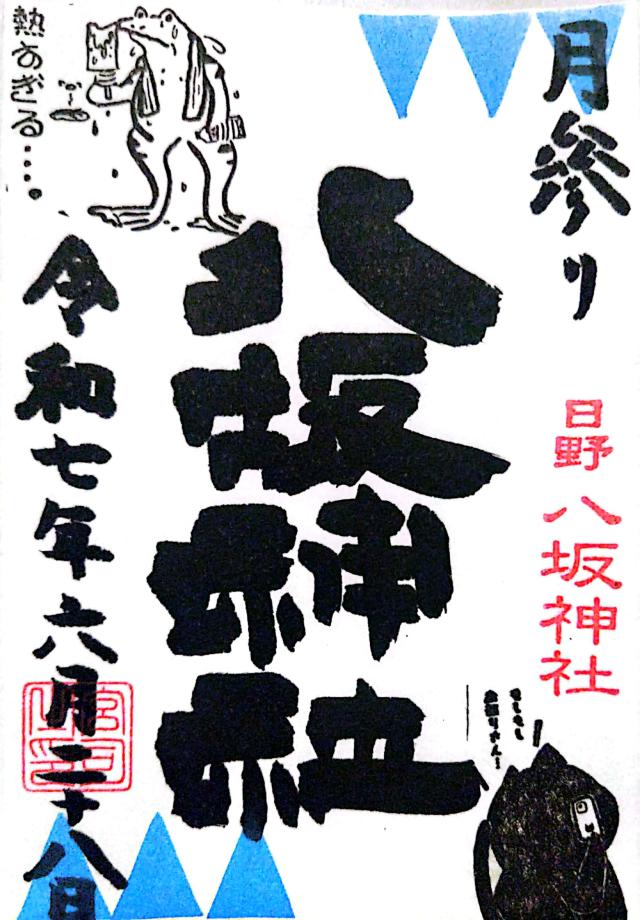 月参り
日野八坂神社
八坂神社
熱すぎる....
令和七年六月二十八日